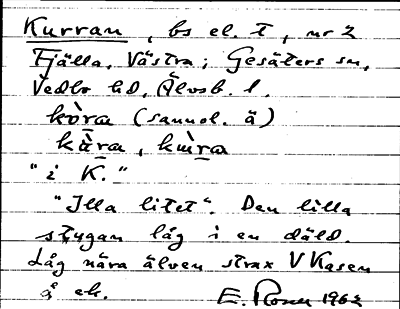 Kurran, bs el. t, nr 2
Fjälla, Västra; Gesäters sn,
Vedbo hd, Älvsb. l.
kòra (sannol. ä)
kàra, kùra
"i K."
"Illa litet". Den lilla
stugan låg i en däld.
Låg nära älven strax V Kasen
å ek. E. Rosen 1962